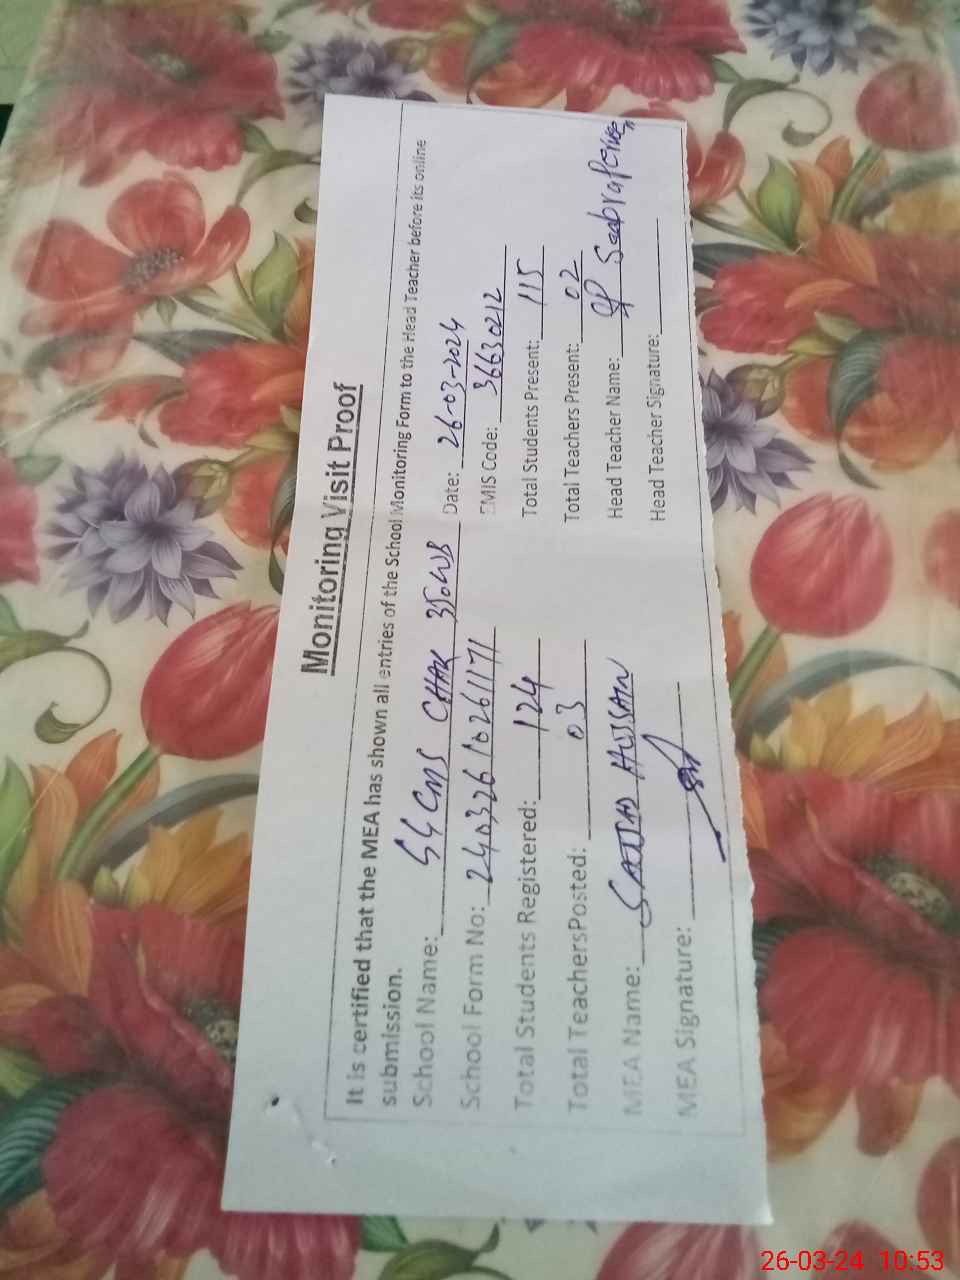 Monitoring Visit Proof
It is certified that the MEA has shown all entries of the School Monitoring Form to the Head Teacher before its online
submission.
School Name: CHAK 350WB Date: 26-03-2024
School Form No: EMIS Code: 36630212
Total Students Registered: 124 Total Students Present: 115
Total TeachersPosted: 03 Total Teachers Present: 02
MEA Name: SAJJAD HUSSAIN Head Teacher Name:
MEA Signature: Head Teacher Signature:
26-03-24 10:53